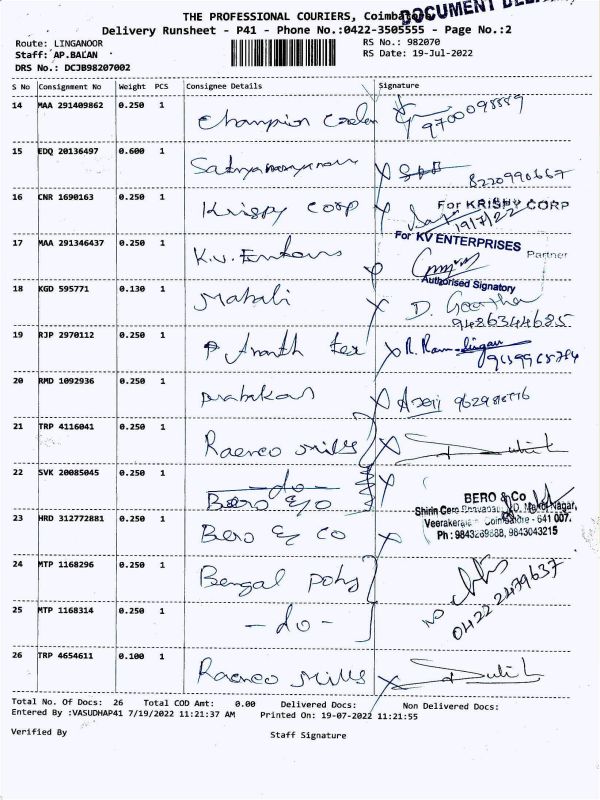 DOCUMENT
THE PROFESSIONAL COURIERS, Coimbatore
Delivery Runsheet - P41 - Phone No.:0422-3505555 - Page No.:2
Route: LINGANOOR
RS No.: 982070
Staff: AP.BALAN
RS Date: 19-Jul-2022
DRS No.: DCJB98207002
S No Consignment No Weight PCS Consignee Details Signature
14 MAA 291409862 0.250 1 Champion
15 EDQ 20136497 0.600 1
8220990667
16 CNR 1690163 0.250 1 Krispy Corp
For KRISHY CORP
19/7/22
17 MAA 291346437 0.250 1 K.V.
For KV ENTERPRISES
Partner
Authorised Signatory
18 KGD 595771 0.130 1 Mahali D. Geetha
9486344685
19 RJP 2970112 0.250 1 Ananth Tex R. Ram
20 RMD 1092936 0.250 1
21 TRP 4116041 0.250 1 Raenco Mills
22 SVK 20085045 0.250 1 - do -
Bero & Co
BERO & Co
Veerakeralam Coimbatore - 641 007.
Ph : 9843269888, 9843043215
23 HRD 312772881 0.250 1 Bero & Co
24 MTP 1168296 0.250 1 Bengal Poly
NO
0422 2479637
25 MTP 1168314 0.250 1 - do -
26 TRP 4654611 0.100 1 Raenco Mills
Total No. Of Docs: 26 Total COD Amt: 0.00 Delivered Docs: Non Delivered Docs:
Entered By :VASUDHAP41 7/19/2022 11:21:37 AM Printed On: 19-07-2022 11:21:55
Verified By Staff Signature